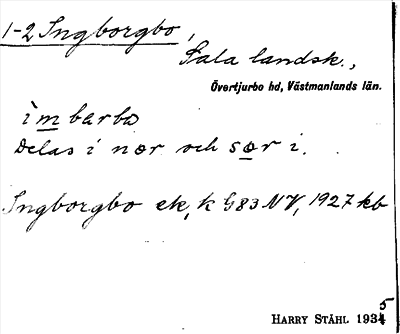 1-2 Ingborgbo,
Sala landsk.,
Övertjurbo hd, Västmanlands län.
ìmbarbo
Delas i nor och sør i.
Ingborgbo ek, k G83 NV, 1927 kb
HARRY STÅHL 1935